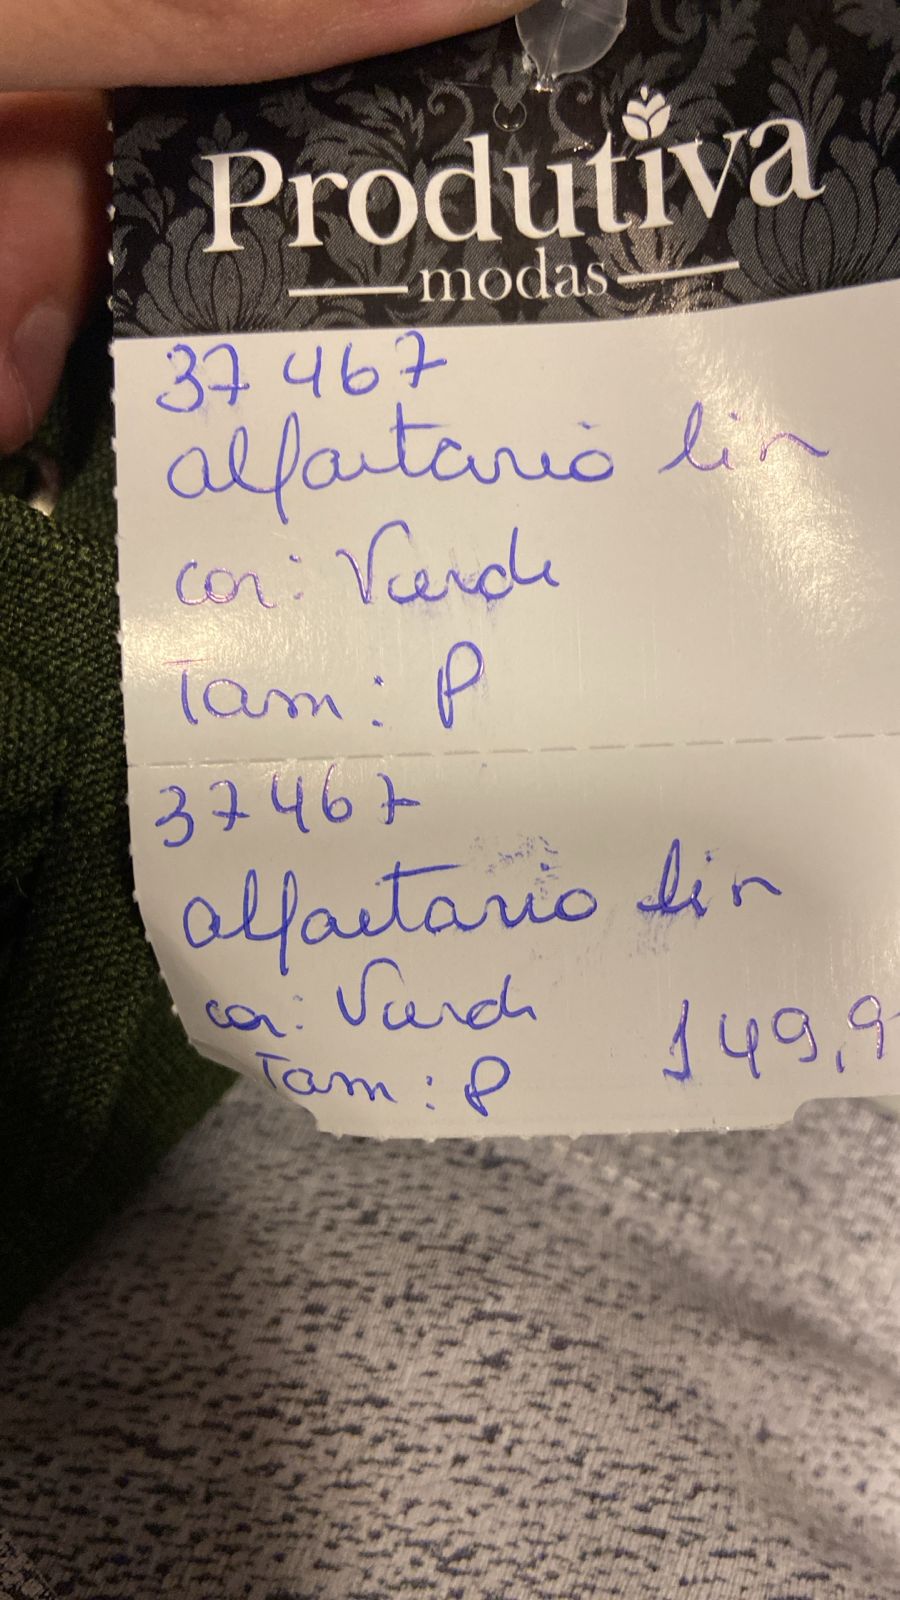 Produtiva
modas
37467
alfaiataria lin
cor: Verde
Tam: P
37467
alfaiataria lin
cor: Verde
Tam: P 149,9